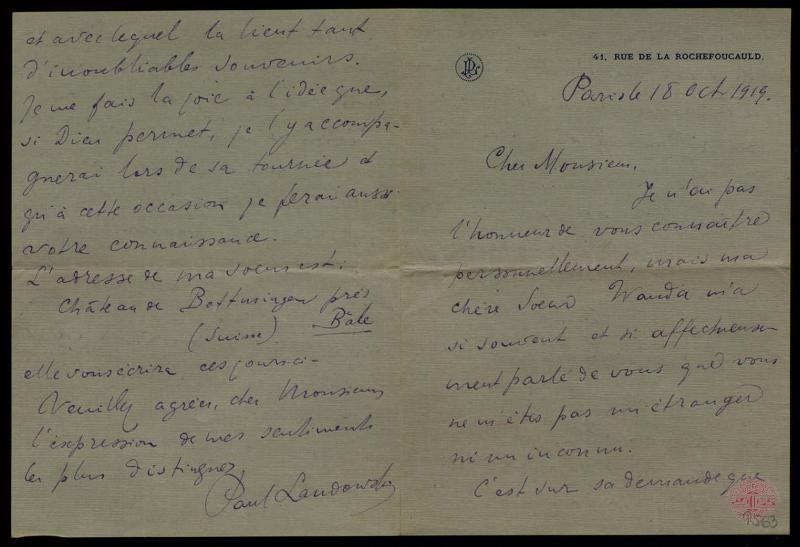 41, RUE DE LA ROCHEFOUCAULD.
Paris le 18 Oct. 1919.
Cher Monsieur,
Je n'ai pas
l'honneur de vous connaître
personnellement, mais ma
chère Soeur Wanda m'a
si souvent et si affectueuse-
ment parlé de vous que vous
ne m'êtes pas un étranger
ni un inconnu.
C'est sur sa demande que
et avec lequel la lient tant
d'inoubliables souvenirs.
Je me fais la joie à l'idée que,
si Dieu permet, je l'y accompa-
gnerai lors de sa tournée et
qu'à cette occasion je ferai aussi
votre connaissance.
L'adresse de ma soeur est:
Château de Bottmingen près
(Suisse) Bâle
elle vous écrira ces jours ci-
Veuillez agréer, cher Monsieur
l'expression de mes sentiments
les plus distingués
Paul Landowski
1563